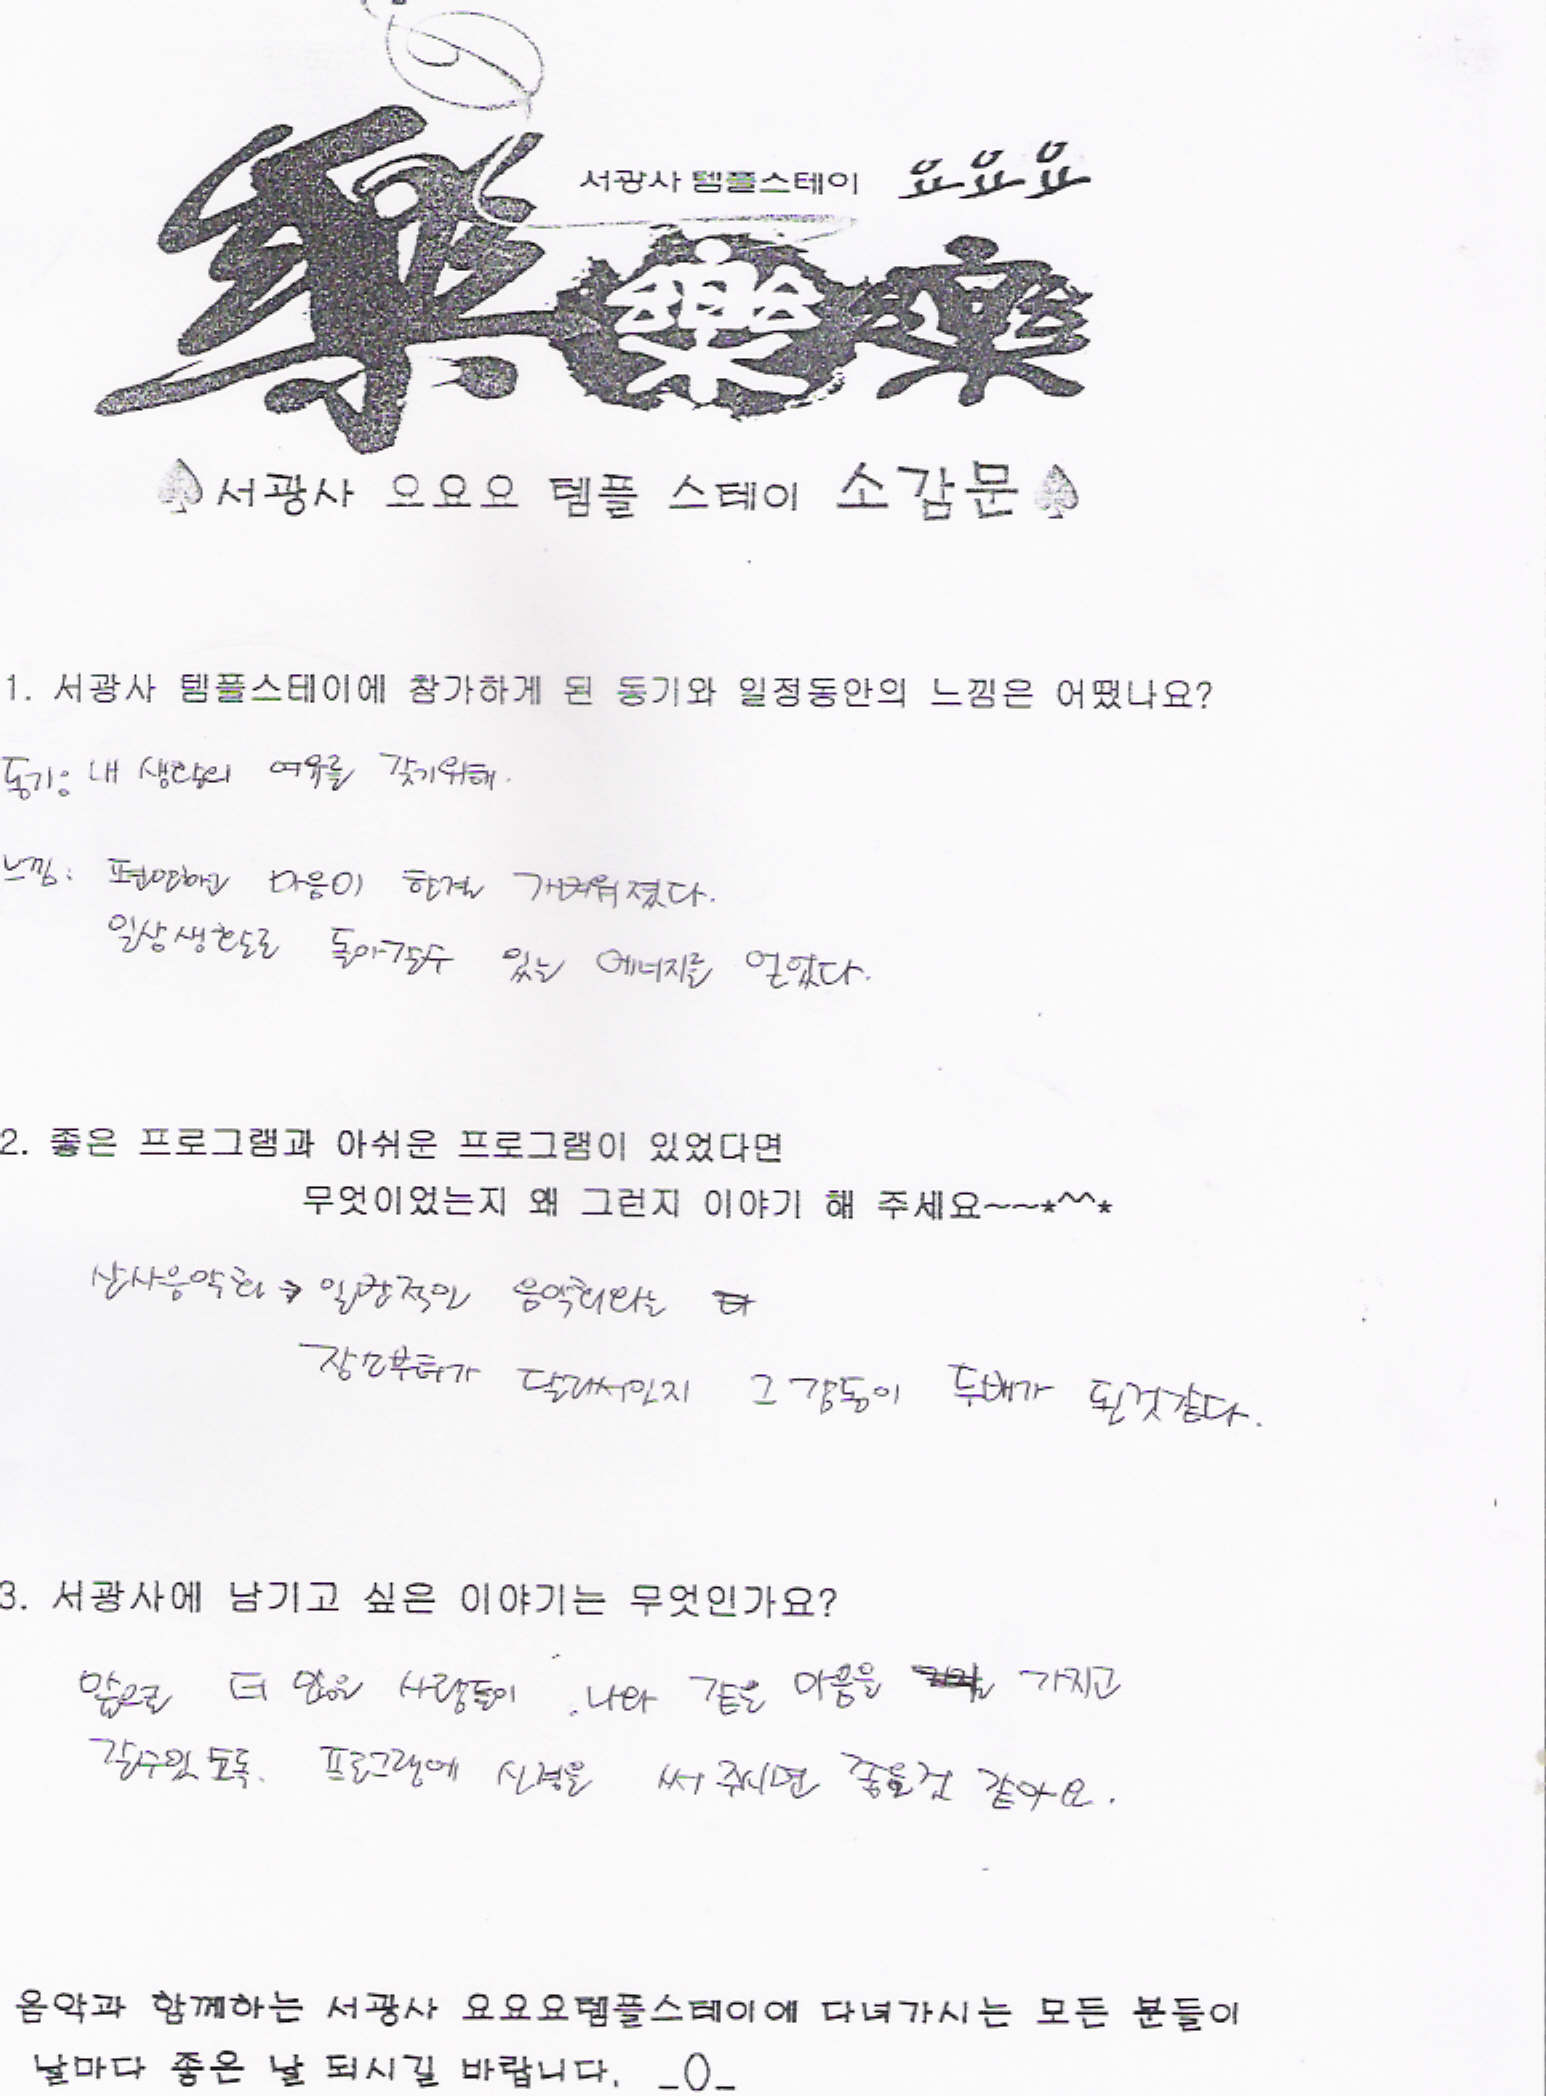 서광사 템플스테이 요요요
樂 樂 樂
서광사 요요요 템플 스테이 소감문
1. 서광사 템플스테이에 참가하게 된 동기와 일정동안의 느낌은 어땠나요?
동기: 내 생활의 여유를 갖기위해.
느낌: 편안하고 마음이 한결 가벼워졌다.
일상생활로 돌아갈수 있는 에너지를 얻았다.
2. 좋은 프로그램과 아쉬운 프로그램이 있었다면
무엇이었는지 왜 그런지 이야기 해 주세요~~*^^*
산사음악회 → 일반적인 음악회와는
장소부터가 달라서인지 그 감동이 두배가 된것같다.
3. 서광사에 남기고 싶은 이야기는 무엇인가요?
앞으로 더 많은 사람들이 나와 같은 마음을 가지고
갈수있도록. 프로그램에 신경을 써 주시면 좋을것 같아요.
음악과 함께하는 서광사 요요요템플스테이에 다녀가시는 모든 분들이
날마다 좋은 날 되시길 바랍니다. _()_